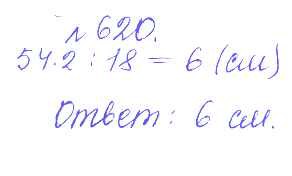 № 620.
54·2 : 18 = 6 (см)
Ответ: 6 см.